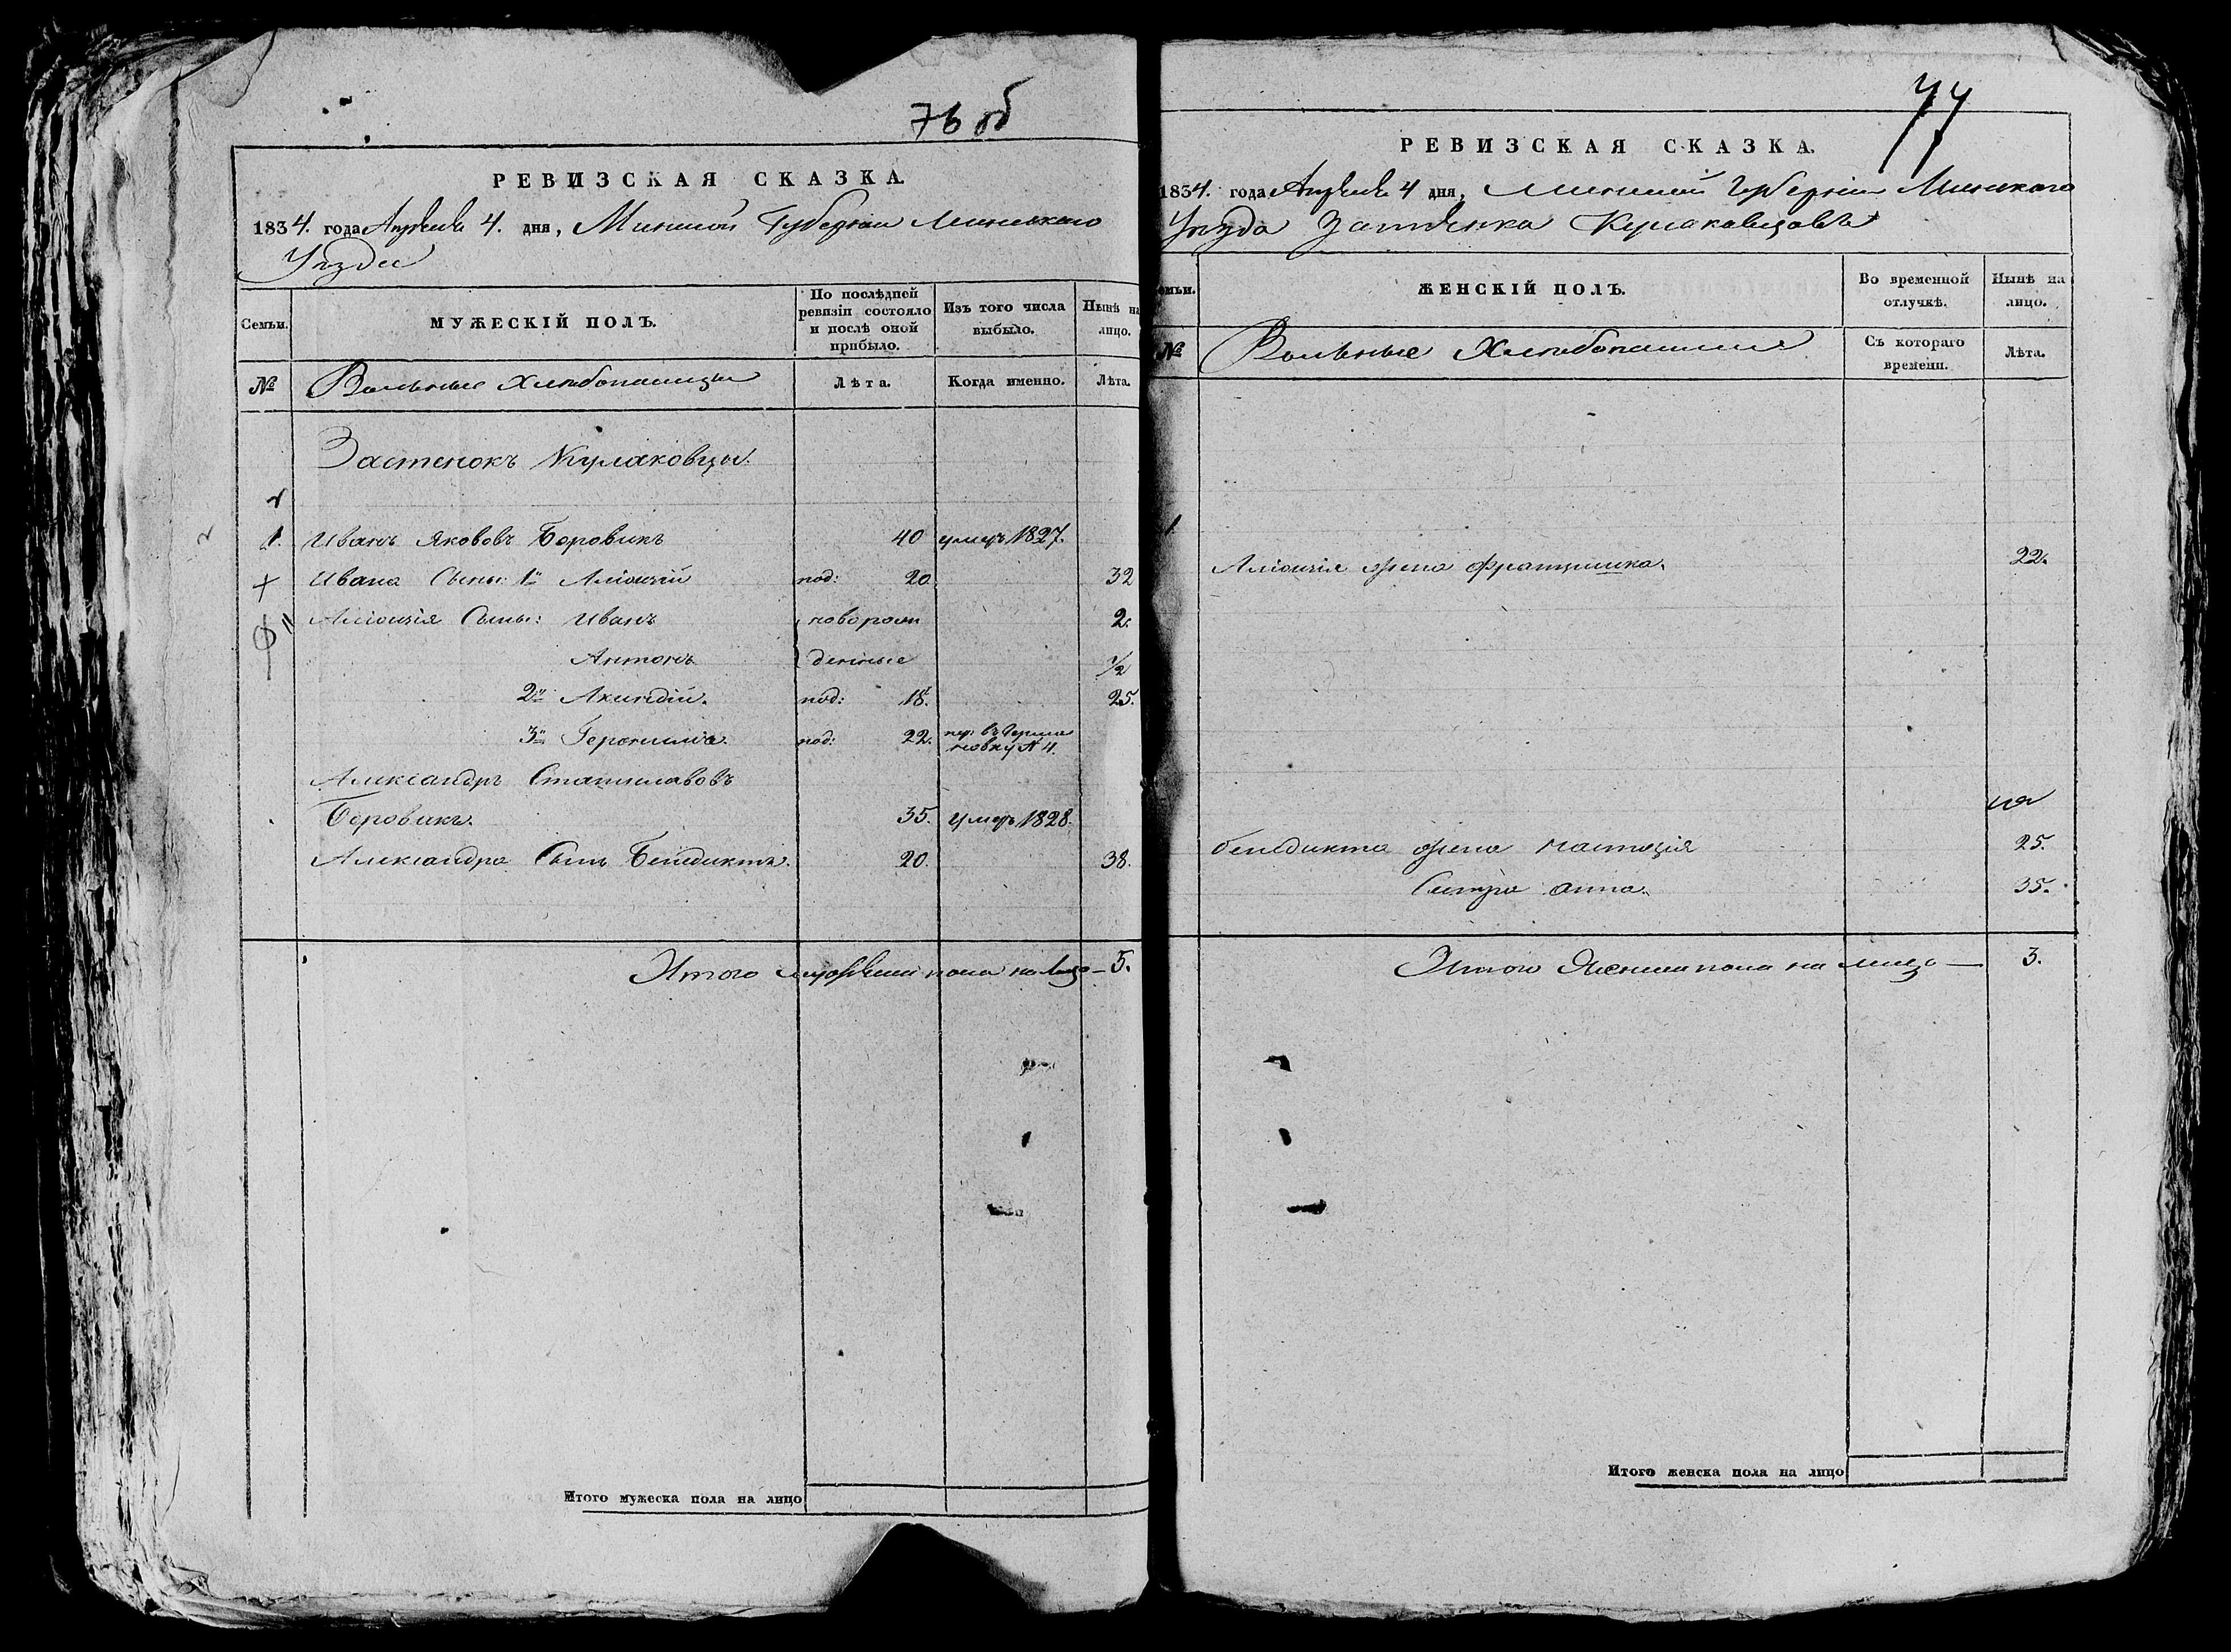 76 об
РЕВИЗСКАЯ СКАЗКА.
1834. года Апреля 4. дня, Минской Губернии Минского
Уезда
Семьи.
МУЖЕСКІЙ ПОЛЪ.
По послѣдней
ревизіи состояло
и послѣ оной
прибыло.
Изъ того числа
выбыло.
Нынѣ на
лицо.
№
Вольные Хлебопашцы
Лѣта.
Когда именно.
Лѣта.
Застенокъ Кулаковцы.
1. Иванъ Яковъ Боровикъ 40 умеръ 1827.
Ивана Сыны: 1й Алоизій под: 20 32
Алоизія Сыны: Иванъ новорож 2.
Антонъ денные 1/2
2й под: 18. 25.
3й Геронимъ под: 22. пер: въ
новку № 4.
Александръ Станиславовъ
Боровикъ. 35. умеръ 1828.
Александра Сынъ Бенедиктъ. 20. 38.
Итого мужеска пола на лицо — 5.
Итого мужеска пола на лицо
77
РЕВИЗСКАЯ СКАЗКА.
1834. года Апреля 4 дня, Минской Губерніи Минского
Уезда Застенка Кулаковцовъ
семьи.
ЖЕНСКІЙ ПОЛЪ.
Во временной
отлучкѣ.
Нынѣ на
лицо.
№
Вольные Хлебопашцы
Съ котораго
времени.
Лѣта.
1.
Алоизія жена Францишка. 22.
Бенедикта жена Настазія 25.
Сестра Анна. 35.
Итого Женска пола на лицо — 3.
Итого женска пола на лицо